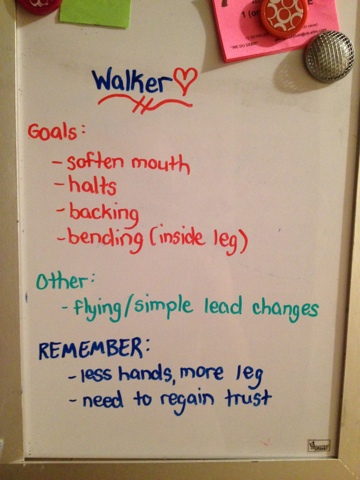 Walker
Goals:
- soften mouth
- halts
- backing
- bending (inside leg)
Other:
- flying/simple lead changes
REMEMBER:
- less hands, more leg
- need to regain trust